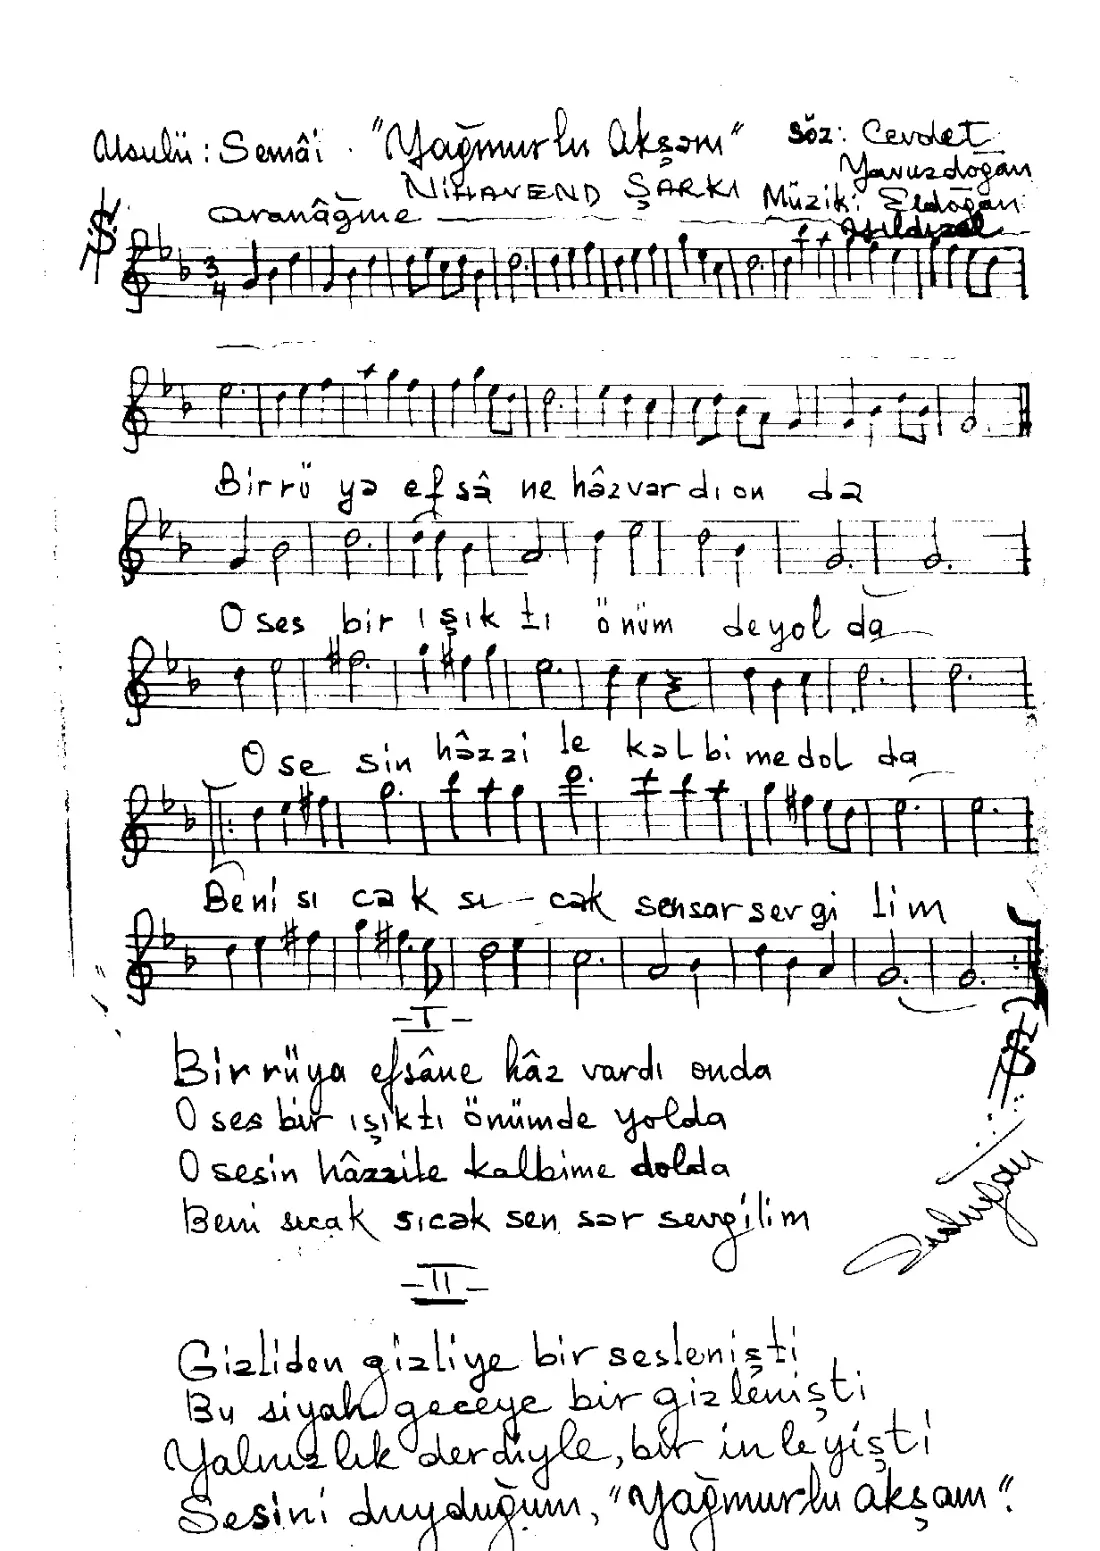 Usulü: Semâi . "Yağmurlu Akşam" Söz: Cevdet
Yavuzdoğan
NİHAVEND ŞARKI Müzik: Eldoğan
Aranâğme
3
4
Bir rü ya ef sâ ne hâz var dı on da
O ses bir ı şık tı önüm de yol da
O se sin hâzzi le kal bi me dol da
Beni sı ca k sı - cak sen sar sev gi lim
- I -
Bir rüya efsâne hâz vardı onda
O ses bir ışıktı önümde yolda
O sesin hâzzile kalbime dolda
Beni sıcak sıcak sen sar sevgilim
- II -
Gizliden gizliye bir seslenişti
Bu siyah geceye bir gizlenişti
Yalnızlık derdiyle, bir inleyişti
Sesini duyduğum, "Yağmurlu akşam".